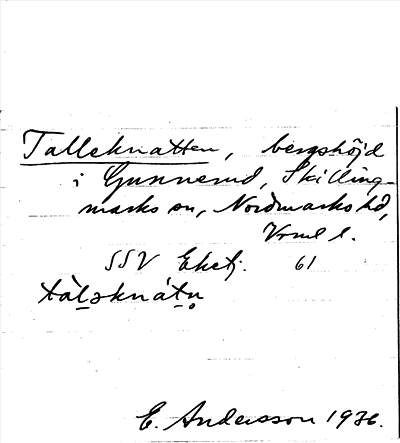 Talleknatten, bergshöjd
i Gunnerud, Skilling-
marks sn, Nordmarks hd,
Vrml l.
SSV Eketj. 61
tàl̠əknát̠n̥
E. Andersson 1936.